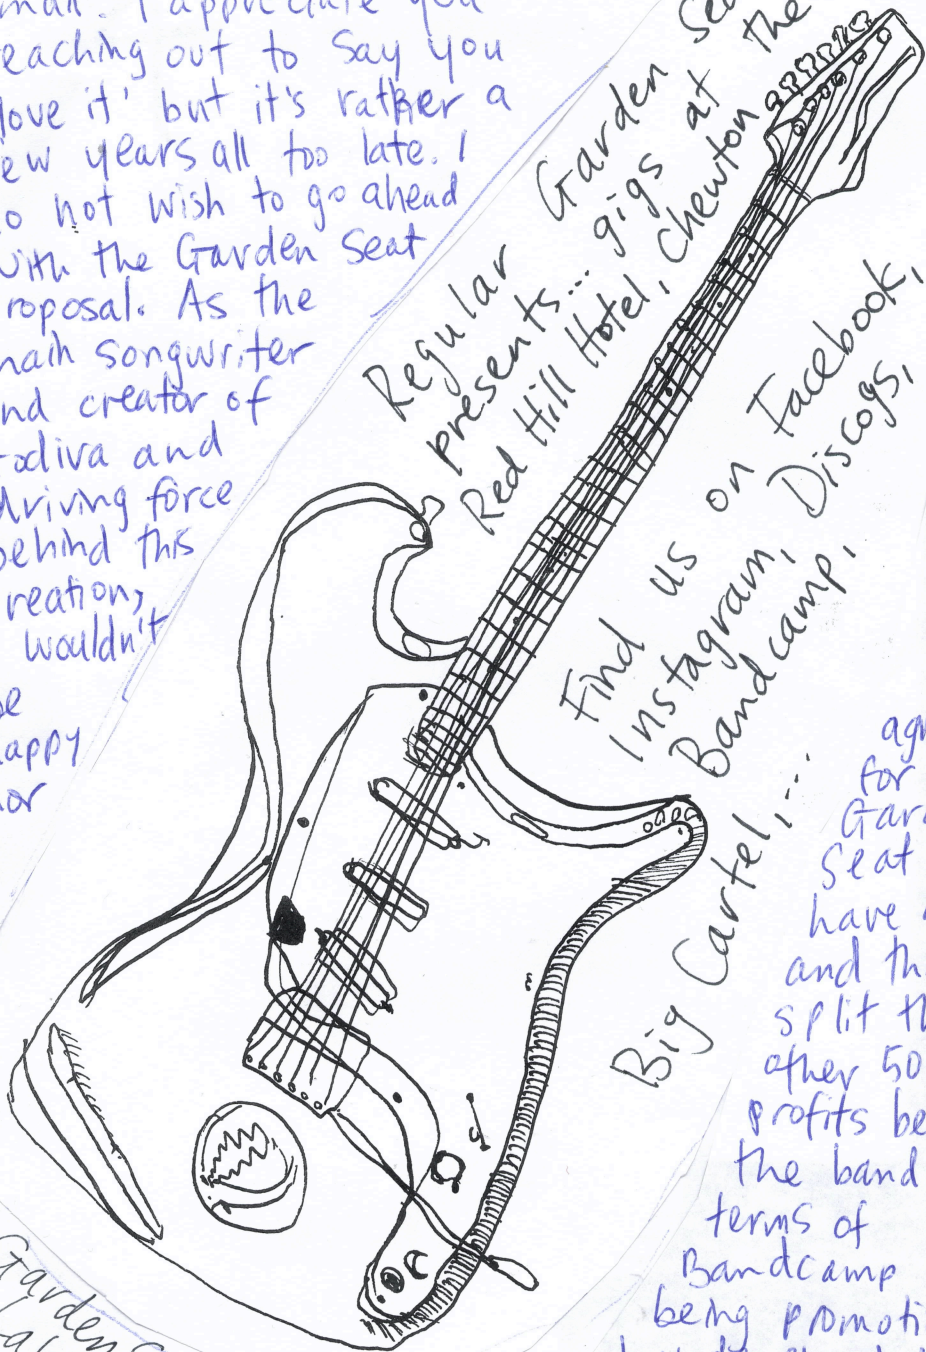 man. I appreciate you
eaching out to say you
love it' but it's rather a
ew years all too late. I
o not wish to go ahead
with the Garden Seat
roposal. As the
main songwriter
nd creator of
odiva and
driving force
behind this
reation,
wouldn't
be
happy
nor
Regular Garden Sea
presents... gigs at the
Red Hill Hotel, Chewton
Find us on Facebook,
Instagram, Discogs,
Bandcamp,
Big Cartel,...
agr
for
Gard
Seat
have
and th
split th
other 50
profits be
the band
terms of
Bandcamp
being promoti
Garden S